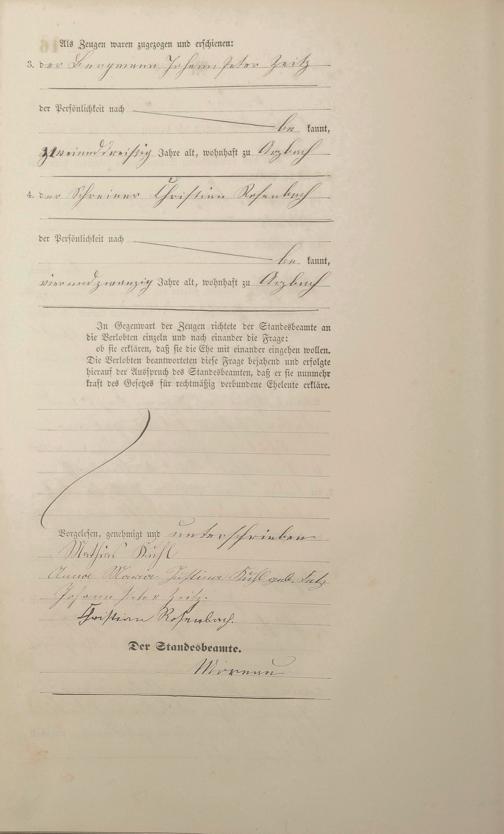 Als Zeugen waren zugezogen und erschienen:
3. der Bergmann Johann Peter Zeitz
der Persönlichkeit nach
be kannt,
zweiunddreißig Jahre alt, wohnhaft zu Arzbach
4. der Schreiner Christian Rosenbach
der Persönlichkeit nach
be kannt,
vierundzwanzig Jahre alt, wohnhaft zu Arzbach
In Gegenwart der Zeugen richtete der Standesbeamte an
die Verlobten einzeln und nach einander die Frage:
ob sie erklären, daß sie die Ehe mit einander eingehen wollen.
Die Verlobten beantworteten diese Frage bejahend und erfolgte
hierauf der Ausspruch des Standesbeamten, daß er sie nunmehr
kraft des Gesetzes für rechtmäßig verbundene Eheleute erkläre.
Vorgelesen, genehmigt und unterschrieben
Mathias Kühl
Anna Maria Justina Kühl geb.
Johann Peter Zeitz.
Christian Rosenbach.
Der Standesbeamte.